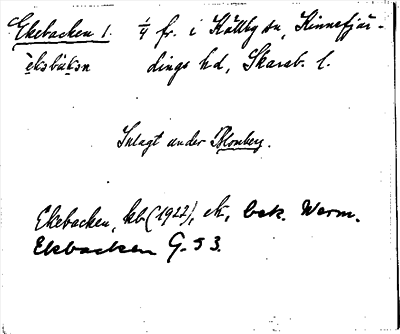 Ekebacken 1. 1/4 fr. i Källby sn, Kinnefjär-
dings hd, Skarab. l.
Inlagt under Blomberg.
Ekebacken, kb (1922), ek, bek. Werm.
Ekbacken G. 53.